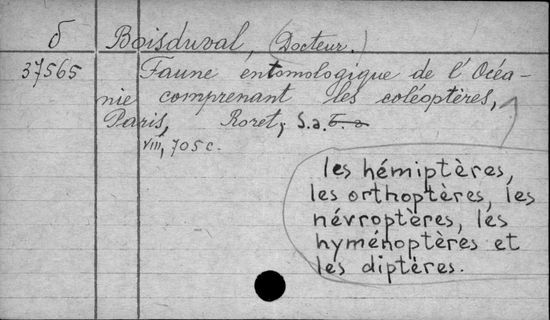 б Boisduval, (Docteur.)
37565 Faune entomologique de l'Océa-
nie comprenant les coléoptères,
Paris, Roret, s.a. б. г.
VIII, 705 c.
les hémiptères,
les orthoptères, les
névroptères, les
hyménoptères et
les diptères.